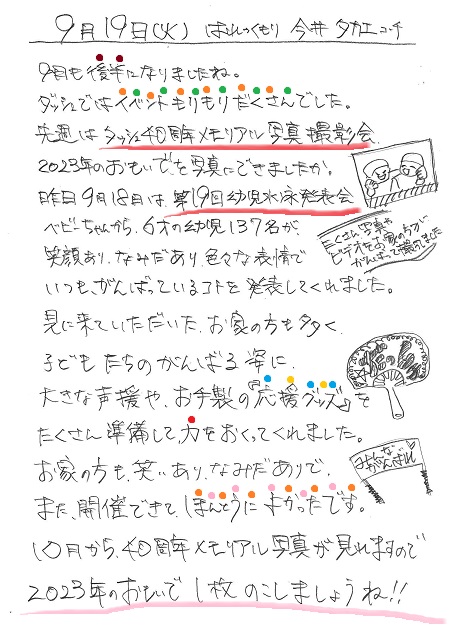 9月19日(火) はれ、くもり 今井 タカエコーチ
9月も後半になりましたね。
ダッシュではイベントもりもりだくさんでした。
先週はダッシュ40周年メモリアル写真撮影会、
2023年のおもいでを写真にできましたか。
昨日9月18日は第19回幼児水泳発表会
ベビーちゃんから、6才の幼児137名が、
笑顔あり、なみだあり、色々な表情で
いつも、がんばっているコトを発表してくれました。
たくさん写真や
ビデオをお家の方が
がんばって撮りました
見に来ていただいた、お家の方も多く、
子どもたちのがんばる姿に、
大きな声援や、お手製の『応援グッズ』を
たくさん準備して、力をおくってくれました。
みんな
がんばれ
お家の方も、笑いあり、なみだありで、
また、開催できて、ほんとうによかったです。
10月から、40周年メモリアル写真が見れますので
2023年のおもいで1枚のこしましょうね!!